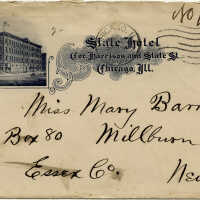 State Hotel
Cor. Harrison and State St.
Chicago, Ill.
Miss Mary Barr
Box 80 Millburn
Essex Co. Ne